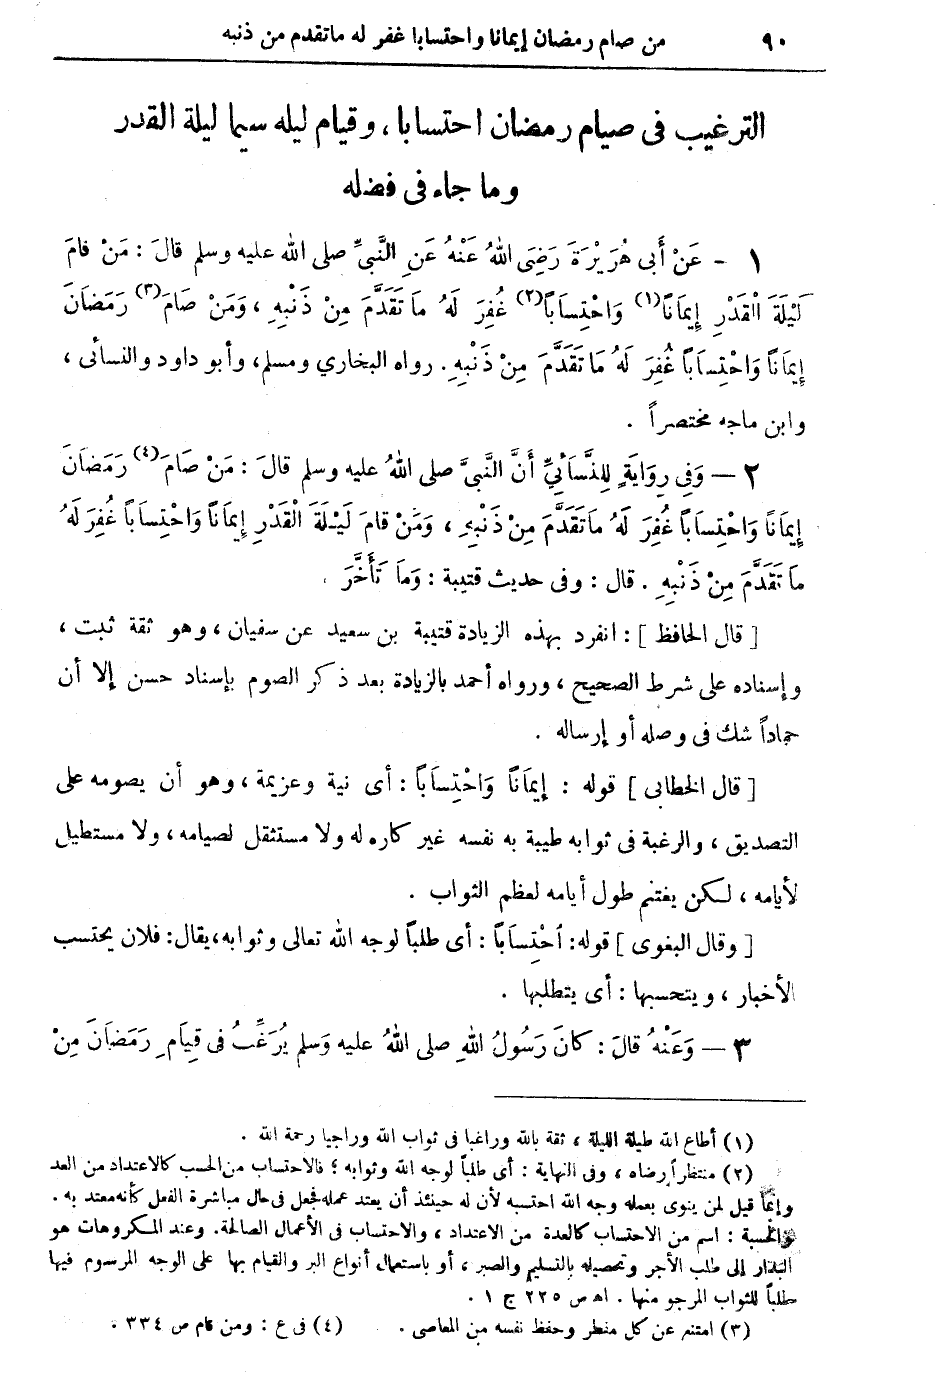 ٩٠ من صام رمضان إيمانا واحتسابا غفر له ماتقدم من ذنبه
الترغيب فى صيام رمضان احتسابا، وقيام ليله سيما ليلة القدر
وما جاء فى فضله
١ - عَنْ أَبى هُرَيْرَةَ رَضِىَ اللهُ عَنْهُ عَنِ النَّبىِّ صلى الله عليه وسلم قالَ: مَنْ قامَ
لَيْلَةَ الْقَدْرِ إِيمَانًا(١) وَاحْتِسَاباً(٢) غُفِرَ لَهُ ما تَقَدَّمَ مِنْ ذَنْبِهِ، وَمَنْ صَامَ(٣) رَمَضَانَ
إِيمَانًا وَاحْتِسَاباً غُفِرَ لَهُ مَا تَقَدَّمَ مِنْ ذَنْبِهِ. رواه البخاري ومسلم، وأبو داود والنسائى،
وابن ماجه مختصراً .
٢ — وَفِى رِوَايَةٍ لِلنَّسَائِىِّ أَنَّ النَّبىَّ صلى اللهُ عليه وسلم قالَ: مَنْ صَامَ(٤) رَمَضَانَ
إِيمَانًا وَاحْتِسَاباً غُفِرَ لَهُ مَاتَقَدَّمَ مِنْ ذَنْبِهِ، وَمَنْ قامَ لَيْلَةَ الْقَدْرِ إِيمَانًا وَاحْتِسَاباً غُفِرَ لَهُ
مَا تَقَدَّمَ مِنْ ذَنْبِهِ . قال : وفى حديث قتيبة : وَمَا تَأَخَّرَ .
[ قال الحافظ ] : انفرد بهذه الزيادة قتيبة بن سعيد عن سفيان، وهو ثقة ثبت،
وإسناده على شرط الصحيح، ورواه أحمد بالزيادة بعد ذكر الصوم بإسناد حسن إلا أن
حماداً شك فى وصله أو إرساله .
[ قال الخطابى ] قوله : إِيمَانًا وَاحْتِسَاباً : أى نية وعزيمة، وهو أن يصومه على
التصديق، والرغبة فى ثوابه طيبة به نفسه غير كاره له ولا مستثقل لصيامه، ولا مستطيل
لأيامه، لكن يغتنم طول أيامه لعظم الثواب .
[ وقال البغوى ] قوله: اُحْتِسَاباً : أى طلباً لوجه الله تعالى وثوابه، يقال: فلان يحتسب
الأخبار، ويتحسبها : أى يتطلبها .
٣ — وَعَنْهُ قالَ: كانَ رَسُولُ اللهِ صلى اللهُ عليه وَسلم يُرَغِّبُ فى قِيَامِ رَمَضَانَ مِنْ
(١) أطاع الله طيلة الليلة، ثقة بالله وراغبا فى ثواب الله وراجيا رحمة الله .
(٢) منتظراً رضاه، وفى النهاية : أى طلباً لوجه الله وثوابه؛ فالاحتساب من الحسب كالاعتداد من العد
وإنما قيل لمن ينوى بعمله وجه الله احتسبه لأن له حينئذ أن يعتد عمله فجعل فى حال مباشرة الفعل كأنه معتد به .
والحسبة : اسم من الاحتساب كالعدة من الاعتداد، والاحتساب فى الأعمال الصالحة. وعند المكروهات هو
البدار إلى طلب الأجر وتحصيله بالتسليم والصبر، أو باستعمال أنواع البر والقيام بها على الوجه المرسوم فيها
طلباً للثواب المرجو منها . اه ص ٢٢٥ ج ١ .
(٣) امتنع عن كل مفطر وحفظ نفسه من المعاصى . (٤) فى ع : ومن قام ص ٣٣٤ .